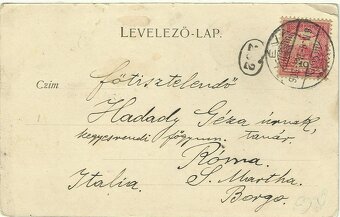 LEVELEZŐ-LAP.
Czím
főtisztelendő
Hadady Géza úrnak,
kegyesrendi főgymn. tanár.
Róma.
Italia.
S. Martha.
Borgo.